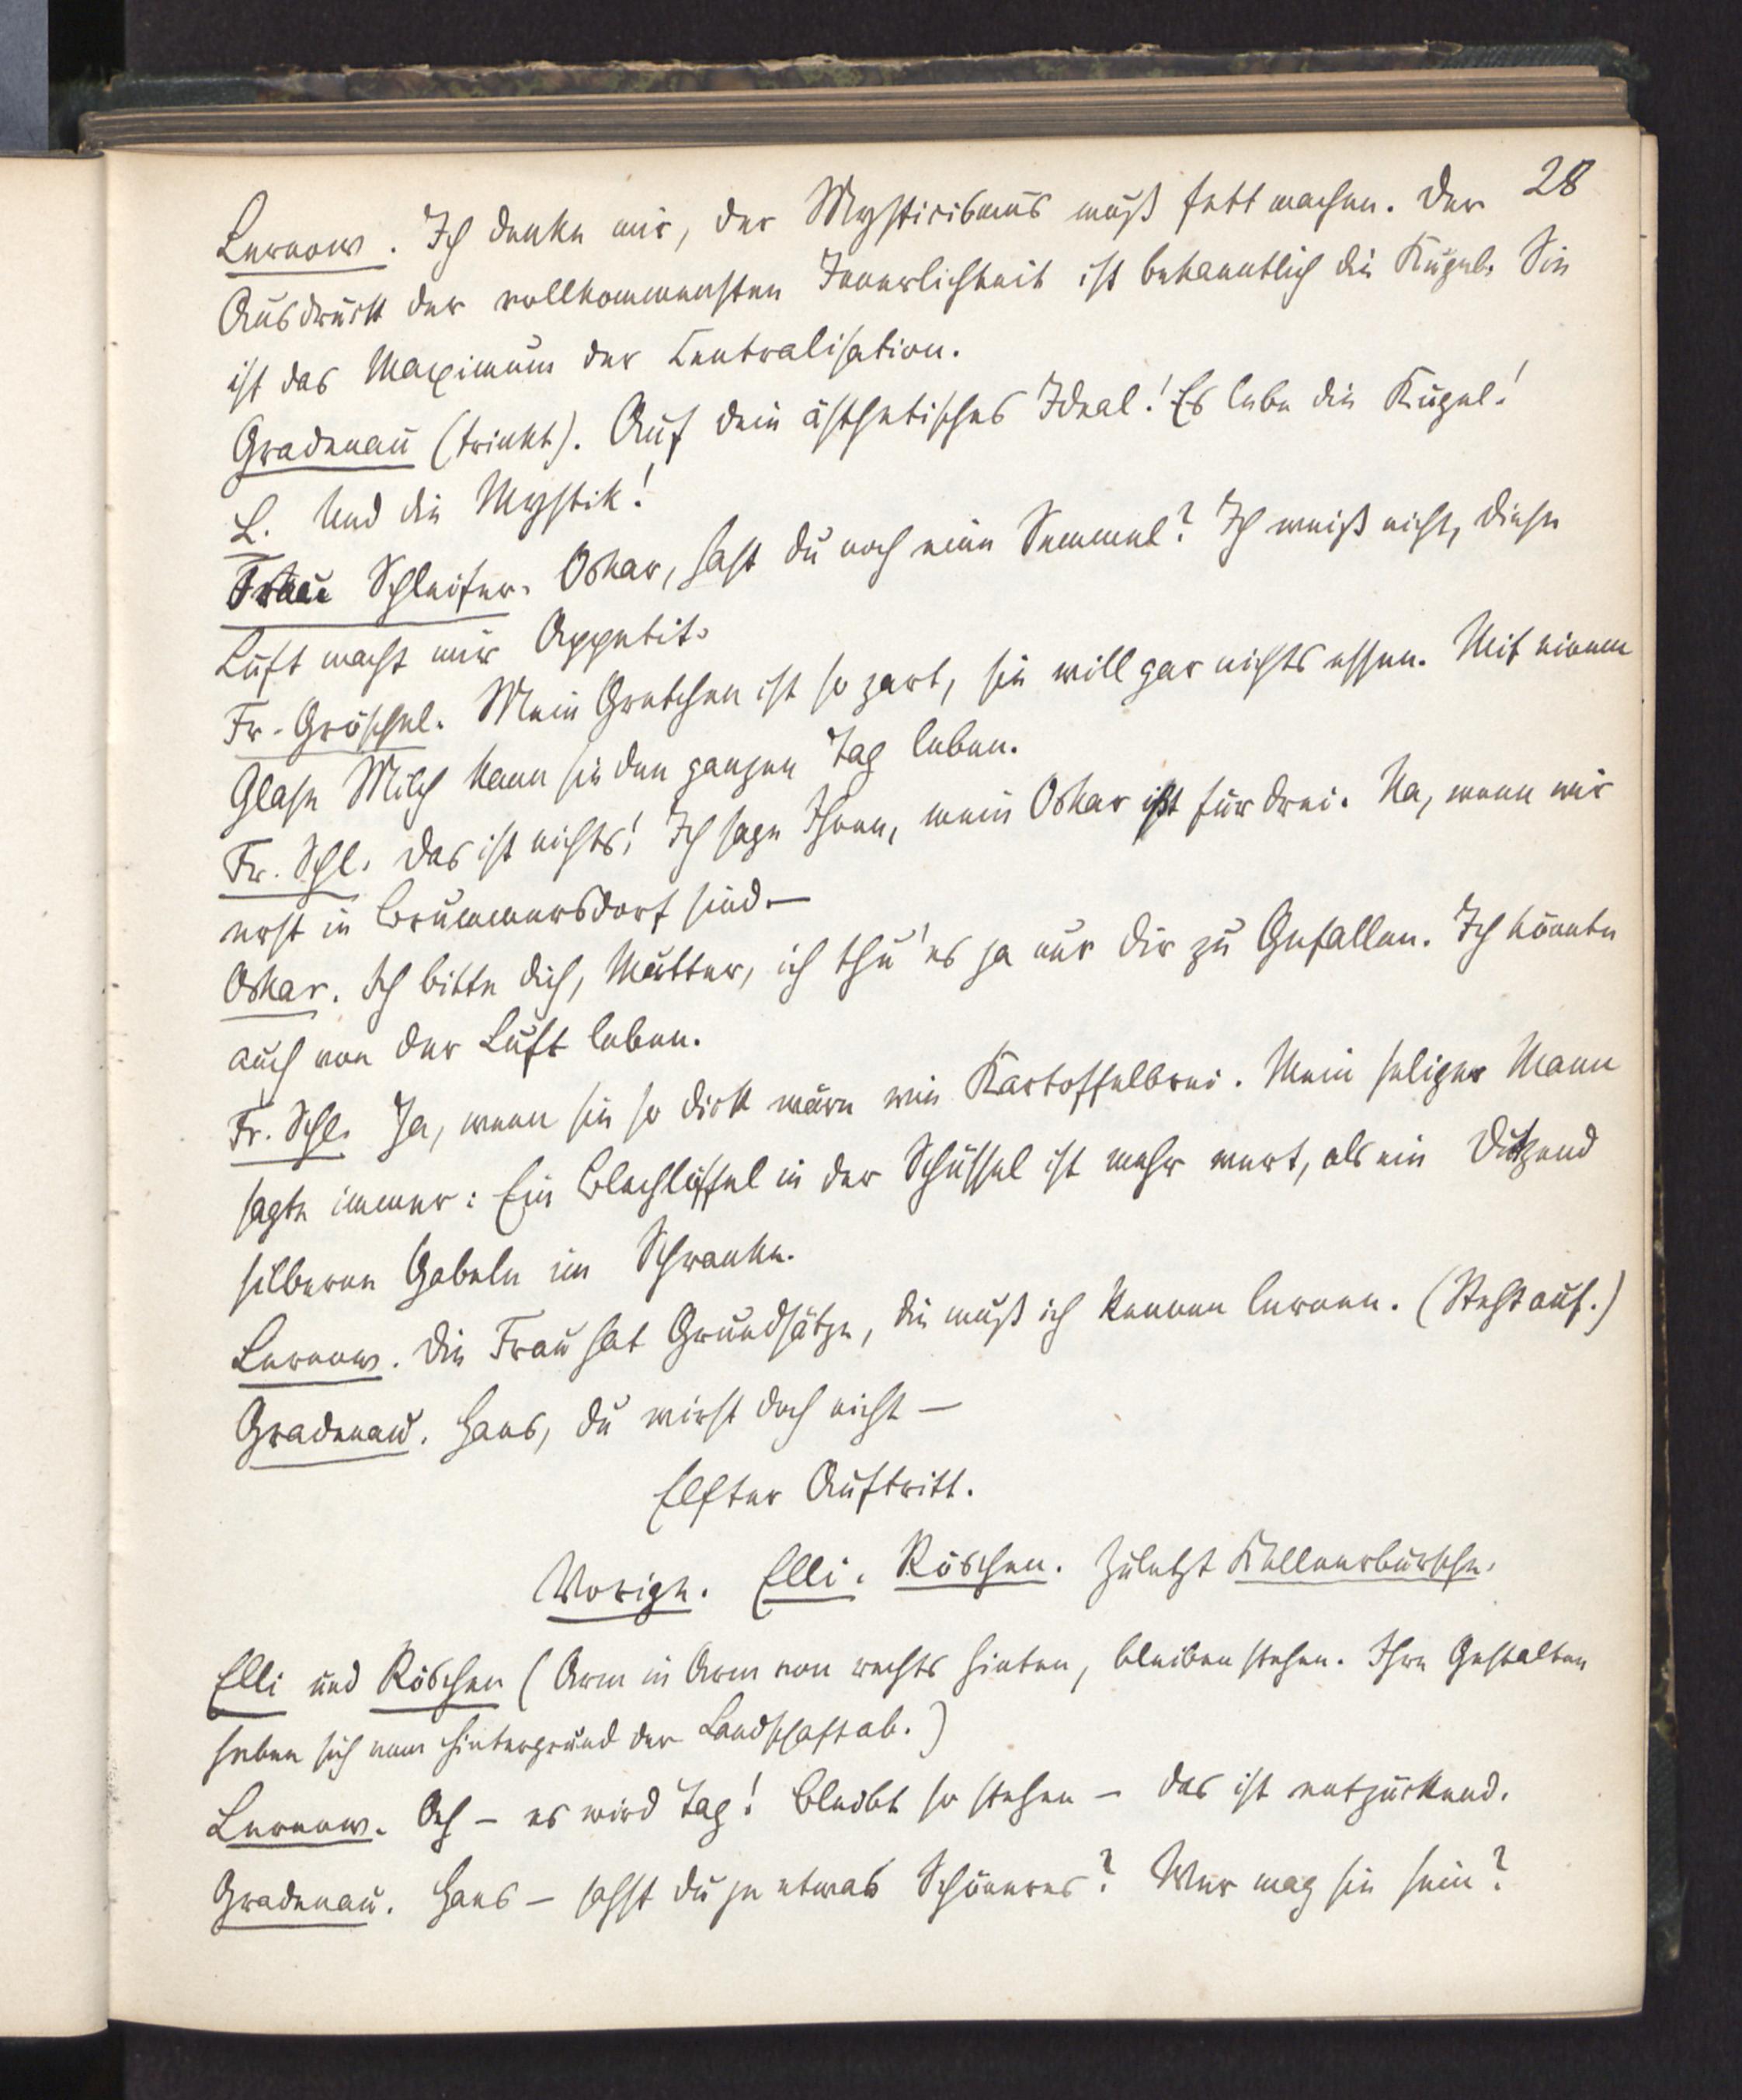 28
Lernow. Ich denke mir, der Mysticismus muß fett machen. Der
Ausdruck der vollkommensten Innerlichkeit ist bekanntlich die Kugel. Sie
ist das Maximum der Centralisation.
Gradenau (trinkt). Auf dein ästhetisches Ideal! Es lebe die Kugel!
L. Und die Mystik!
Frau Schleifer. Oskar, hast du noch eine Semmel? Ich weiß nicht, diese
Luft macht mir Appetit.
Fr. Gröschel. Mein Gretchen ist so zart, sie will gar nichts essen. Mit einem
Glase Milch kann sie den ganzen Tag leben.
Fr. Schl. Das ist nichts! Ich sage Ihnen, mein Oskar ißt für drei. Na, wenn wir
erst in Brummersdorf sind.—
Oskar. Ich bitte dich, Mutter, ich thu' es ja nur dir zu Gefallen. Ich könnte
auch von der Luft leben.
Fr. Schl. Ja, wenn sie so dick wäre wie Kartoffelbrei. Mein seliger Mann
sagte immer: Ein Blechlöffel in der Schüssel ist mehr wert, als ein Dutzend
silberne Gabeln im Schranke.
Lernow. Die Frau hat Grundsätze, die muß ich kennen lernen. (Steht auf.)
Gradenau. Hans, du wirst doch nicht —
Elfter Auftritt.
Vorige. Elli. Röschen. Zuletzt Kellnerbursche.
Elli und Röschen (Arm in Arm von rechts hinten, bleiben stehen. Ihre Gestalten
heben sich vom Hintergrund der Landschaft ab.)
Lernow. Ach — es wird Tag! Bleibt so stehen — das ist entzückend.
Gradenau. Hans — sahst du je etwas Schöneres? Wer mag sie sein?